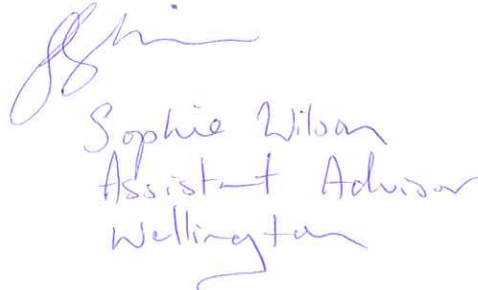 Sophie Wilson
Assistant Advisor
Wellington